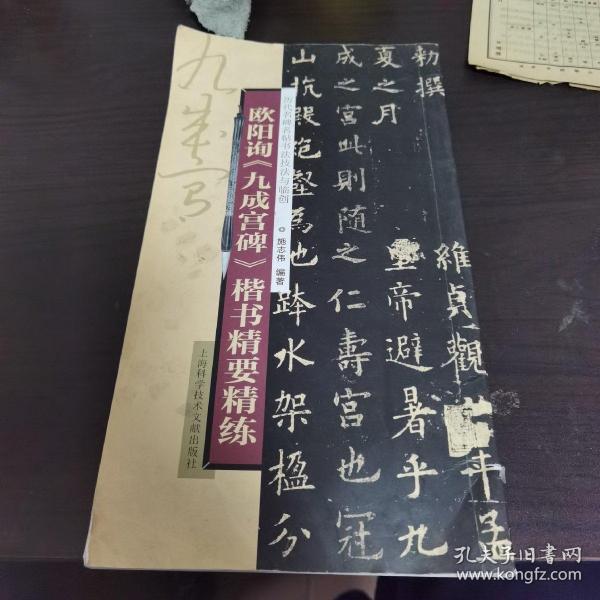 勅撰
維貞觀
夏之月
皇帝避暑乎九
成之宮此則随之仁壽宮也冠
山抗殿絶壑為也跨水架楹分
历代名碑名帖书法技法与临创
施志伟 编著
欧阳询《九成宫碑》楷书精要精练
上海科学技术文献出版社
孔夫子旧书网
www.kongfz.com